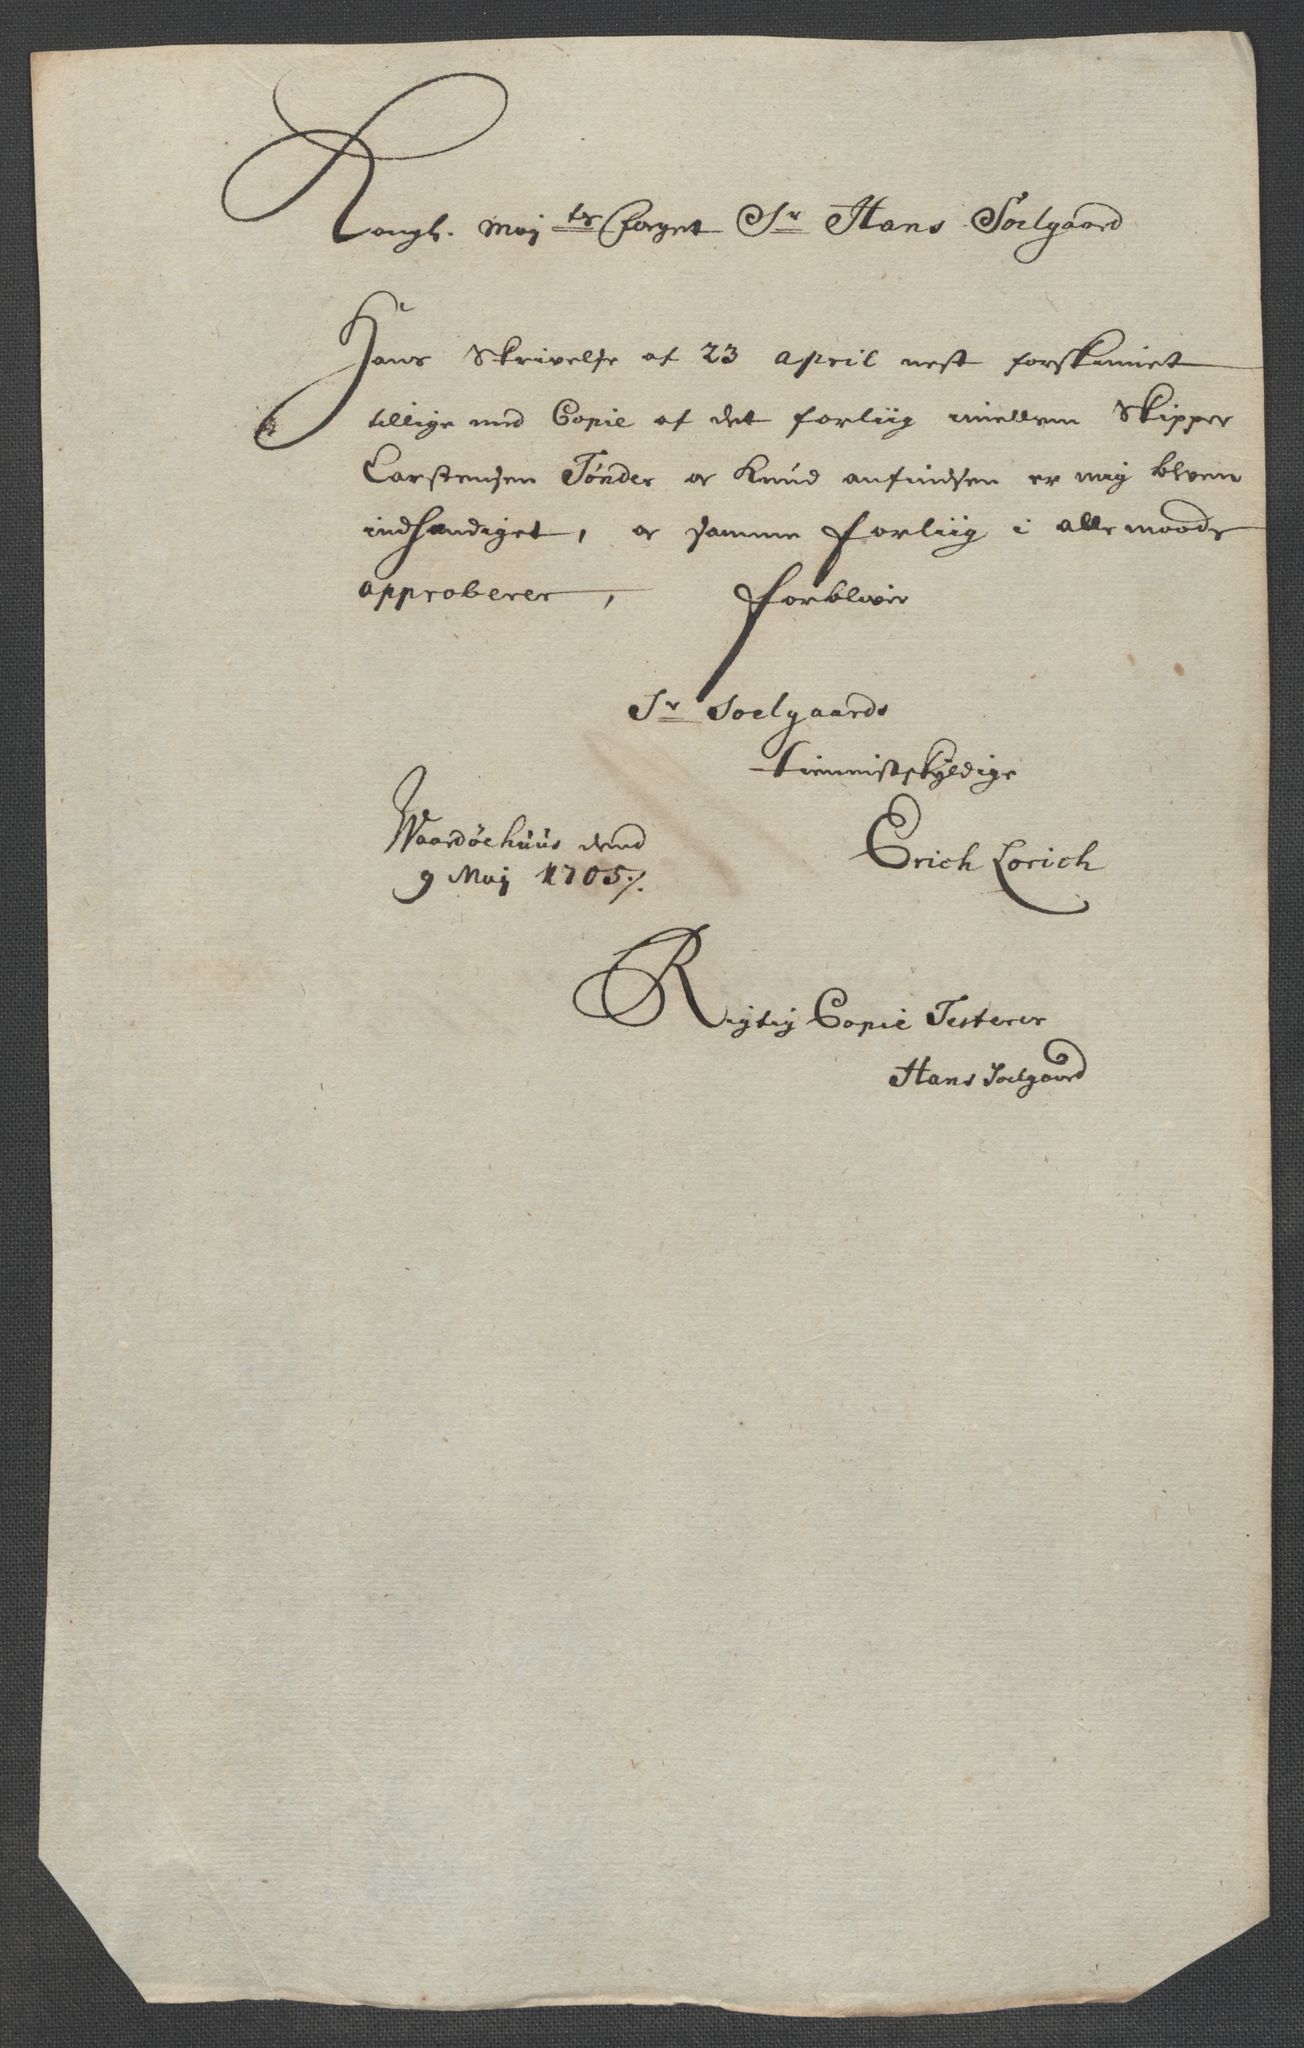 Kongl. Maij ts foget Sr Hans Soelgaard
Hans Skrivelse af 23 april nest forskinnet
tillige med Copie af det forliig imellem Skipper
Carstensen Tønder og Knud anfindsen er mig bleven
indhændiget, og samme forliig i alle maade
approberer, forbliver
Sr Soelgaards
tiennistskyldige
Waardøehuus dend
9 Maij 1705 ./.
Erich Lorich
Rigtig Copie Testerer
Hans Soelgaard